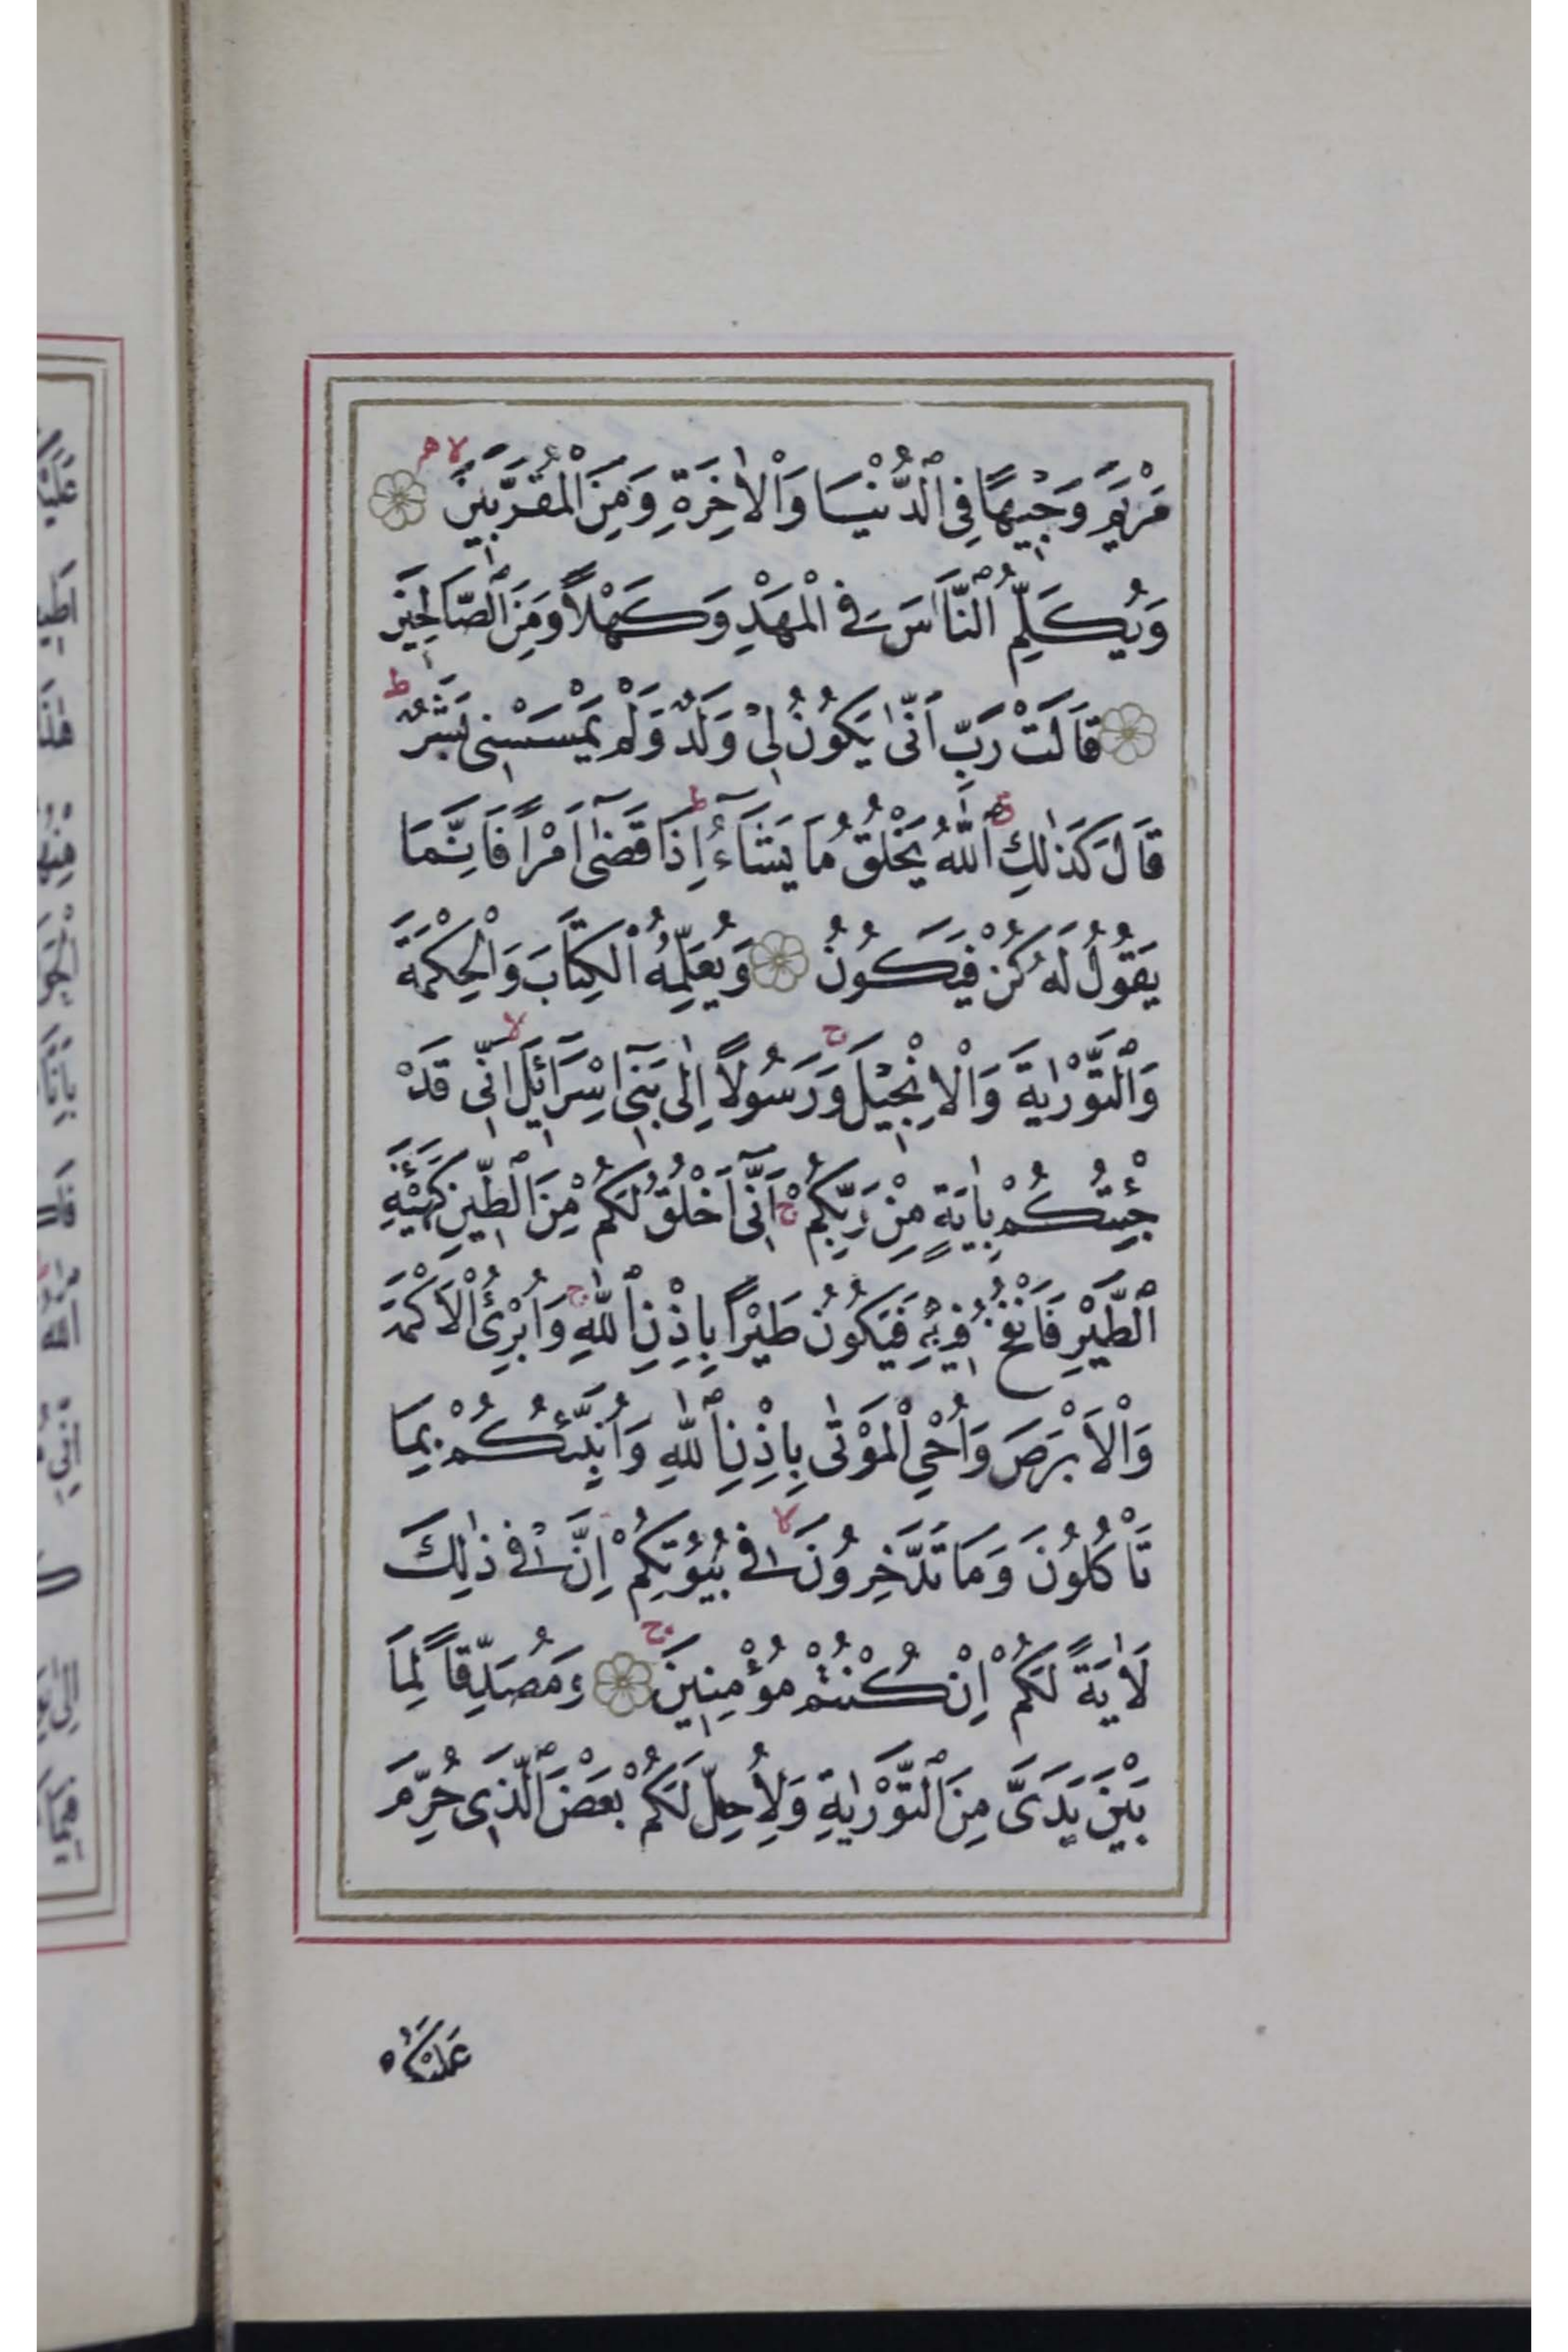 مَرْيَمَ وَجِيْهًا فِي الدُّنْيَا وَالْاٰخِرَةِ وَمِنَ الْمُقَرَّبِينَ لا هـ
وَيُكَلِّمُ النَّاسَ فِي الْمَهْدِ وَكَهْلاً وَمِنَ الصَّالِحِينَ
قَالَتْ رَبِّ اَنّٰى يَكُونُ لِيْ وَلَدٌ وَلَمْ يَمْسَسْنِي بَشَرٌ ط
قَالَ كَذٰلِكِ اللّٰهُ يَخْلُقُ مَا يَشَآءُ ط اِذَا قَضٰٓى اَمْرًا فَاِنَّمَا
يَقُولُ لَهُ كُنْ فَيَكُونُ وَيُعَلِّمُهُ الْكِتَابَ وَالْحِكْمَةَ
وَالتَّوْرٰيةَ وَالْاِنْجِيْلَ ج وَرَسُولاً اِلٰى بَنِٓي اِسْرَٓائِلَ لا اَنِّي قَدْ
جِئْتُكُمْ بِاٰيَةٍ مِنْ رَبِّكُمْ ج اَنِّٓي اَخْلُقُ لَكُمْ مِنَ الطِّينِ كَهَيْئَةِ
الطَّيْرِ فَاَنْفُخُ فِيهِ فَيَكُونُ طَيْرًا بِاِذْنِ اللّٰهِ ج وَاُبْرِئُ الْاَكْمَهَ
وَالْاَبْرَصَ وَاُحْيِ الْمَوْتٰى بِاِذْنِ اللّٰهِ وَاُنَبِّئُكُمْ بِمَا
تَاْكُلُونَ وَمَا تَدَّخِرُونَ لا فِي بُيُوتِكُمْ اِنَّ فِي ذٰلِكَ
لَاٰيَةً لَكُمْ اِنْ كُنْتُمْ مُؤْمِنِينَ ج وَمُصَدِّقًا لِمَا
بَيْنَ يَدَيَّ مِنَ التَّوْرٰيةِ وَلِاُحِلَّ لَكُمْ بَعْضَ الَّذِي حُرِّمَ
عَلَيْكُمْ